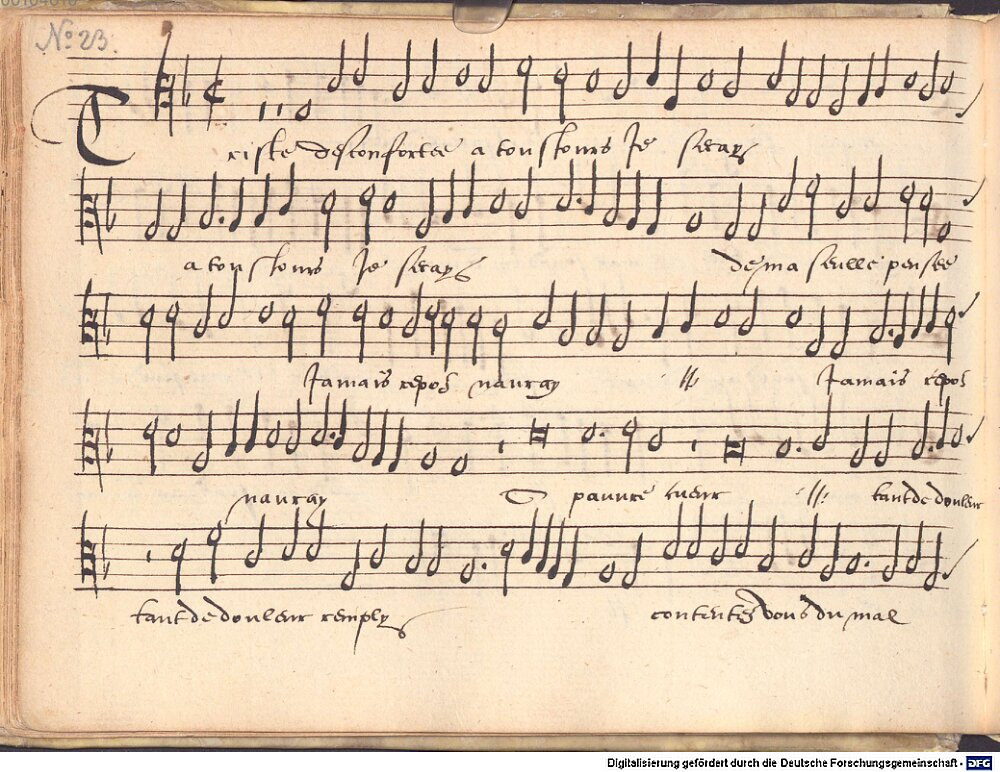 No 23.
Triste desconfortee a tousIours Ie seray
a tousIours Ie seray de ma seulle pensee
Jamais repos nauray // Jamais repos
nauray O pauvre cueur // tant de douleur
tant de douleur remply contentes vous du mal
Digitalisierung gefördert durch die Deutsche Forschungsgemeinschaft - DFG